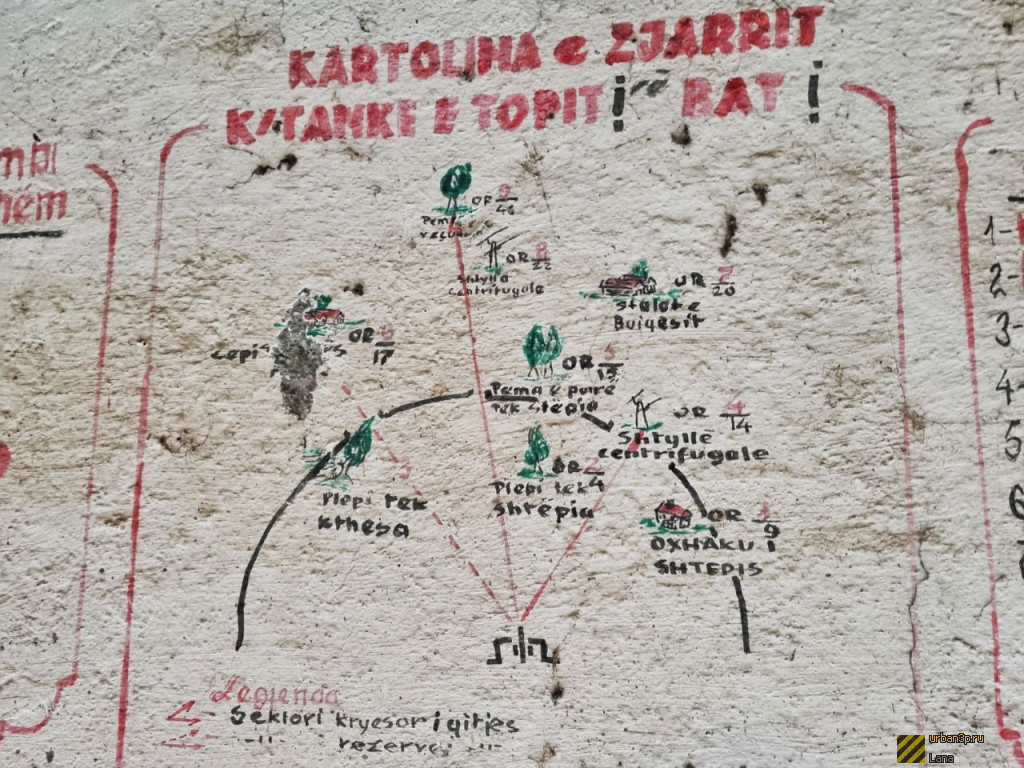 KARTOLINA e ZJARRIT
K/TANKE E TOPIT! BAT!
OR 9/46
Pema e
OR 8/22
Shtylla
centrifugale
OR 7/20
Stalat e
Buiqesit
OR 6/17
OR 5/15
Pema e purrë
tek Stëpia
OR 4/14
Shtyllë
centrifugale
Plepi tek
kthesa
3
OR 2/4
Plepi tek
shtëpia
OR 1/9
OXHAKU I
SHTEPIS
Legjenda
Sektori kryesor i qitjes
-"- rezerve -"-
1-
2-
3-
4-
5
6
urban3p.ru
Lana